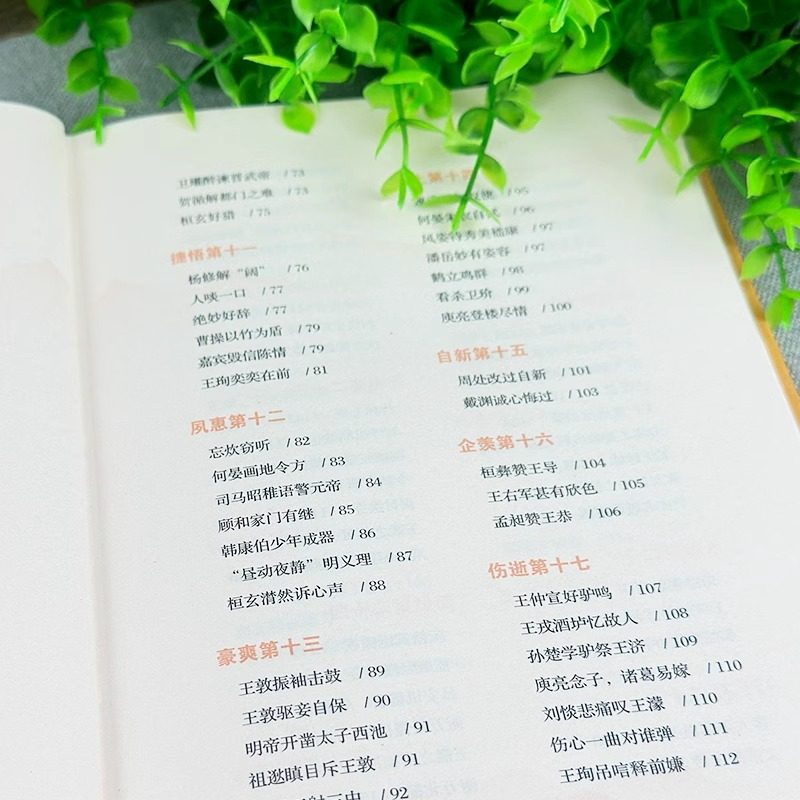 卫瓘醉谏晋武帝 /73
贺循解都门之难 /73
桓玄好猎 /75
捷悟第十一
杨修解“阔” /76
人啖一口 /77
绝妙好辞 /77
曹操以竹为盾 /79
嘉宾毁信陈情 /79
王珣奕奕在前 /81
夙惠第十二
忘炊窃听 /82
何晏画地令方 /83
司马昭稚语警元帝 /84
顾和家门有继 /85
韩康伯少年成器 /86
“昼动夜静”明义理 /87
桓玄潸然诉心声 /88
豪爽第十三
王敦振袖击鼓 /89
王敦驱妾自保 /90
明帝开凿太子西池 /91
祖逖瞋目斥王敦 /91
/92
第十四
/95
何晏朱衣自拭 /96
风姿特秀美嵇康 /97
潘岳妙有姿容 /97
鹤立鸡群 /98
看杀卫玠 /99
庾亮登楼尽情 /100
自新第十五
周处改过自新 /101
戴渊诚心悔过 /103
企羡第十六
桓彝赞王导 /104
王右军甚有欣色 /105
孟昶赞王恭 /106
伤逝第十七
王仲宣好驴鸣 /107
王戎酒垆忆故人 /108
孙楚学驴祭王济 /109
庾亮念子，诸葛易嫁 /110
刘惔悲痛叹王濛 /110
伤心一曲对谁弹 /111
王珣吊唁释前嫌 /112